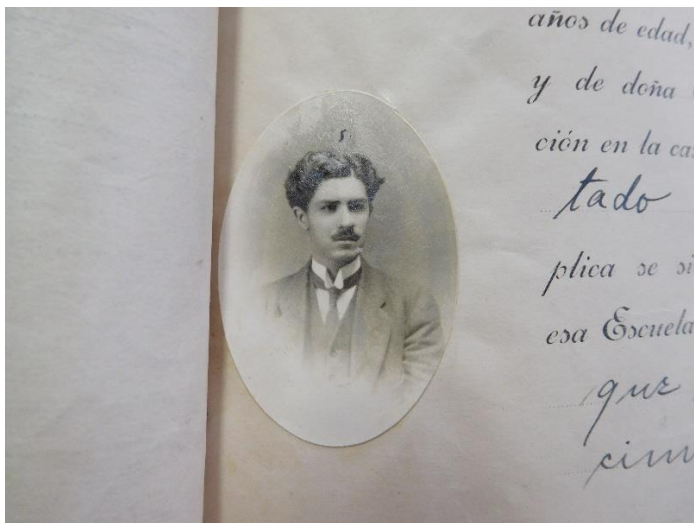 años de edad,
y de doña
ción en la ca
tado
plica se si
esa Escuela
que
cim